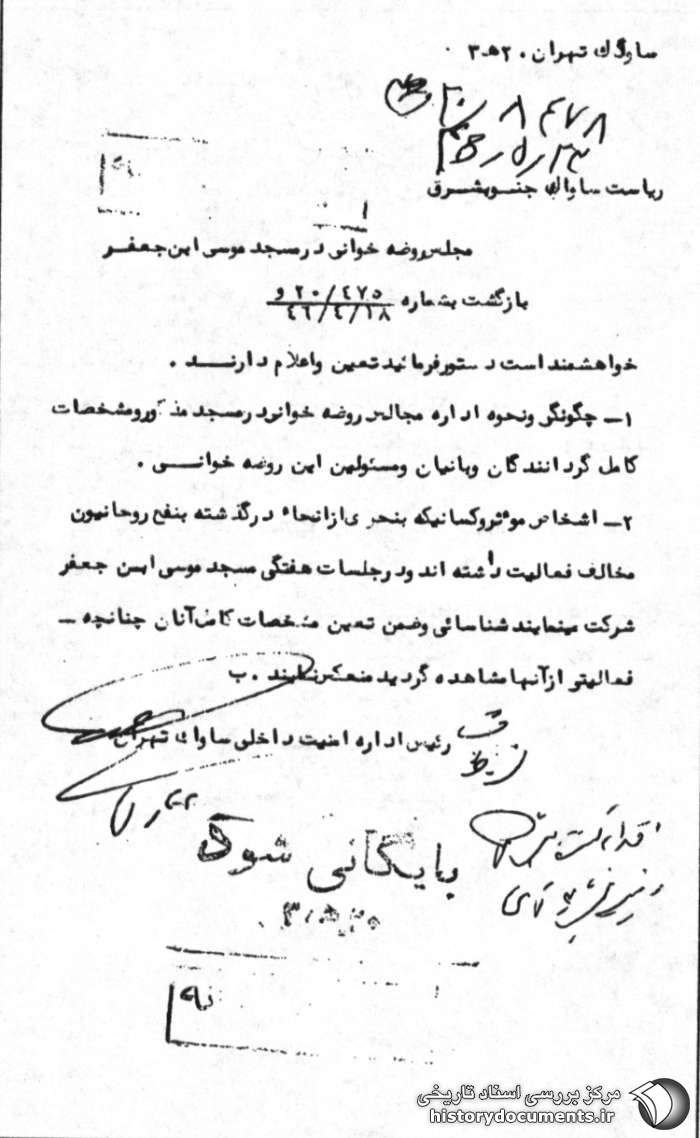 ساواک تهران . ۲۰ ه‍ ۳
ریاست ساواک جنوبشرق
مجلس روضه خوانی در مسجد موسی ابن جعفر
بازگشت بشماره ۲۰/٤٧٥ و
٤٦/٤/١٨
خواهشمند است دستور فرمائید تعیین واعلام دارنــد .
۱ــ چگونگی ونحوه اداره مجالس روضه خوانی در مسجد مذکور ومشخصات
کامل گردانندگان وبانیان ومسئولین این روضه خوانــی .
۲ــ اشخاص موثر وکسانیکه بنحوی ازانحاء درگذشته بنفع روحانیون
مخالف فعالیت داشته اند ودر جلسات هفتگی مسجد موسی ابن جعفر
شرکت مینمایند شناسائی وضمن تعیین مشخصات کامل آنان چنانچه ــ
فعالیتی ازآنها مشاهده گردید منعکس نمایند . ب
رئیس اداره امنیت داخلی ساواک تهران
بایگانی شود
مرکز بررسی اسناد تاریخی
historydocuments.ir